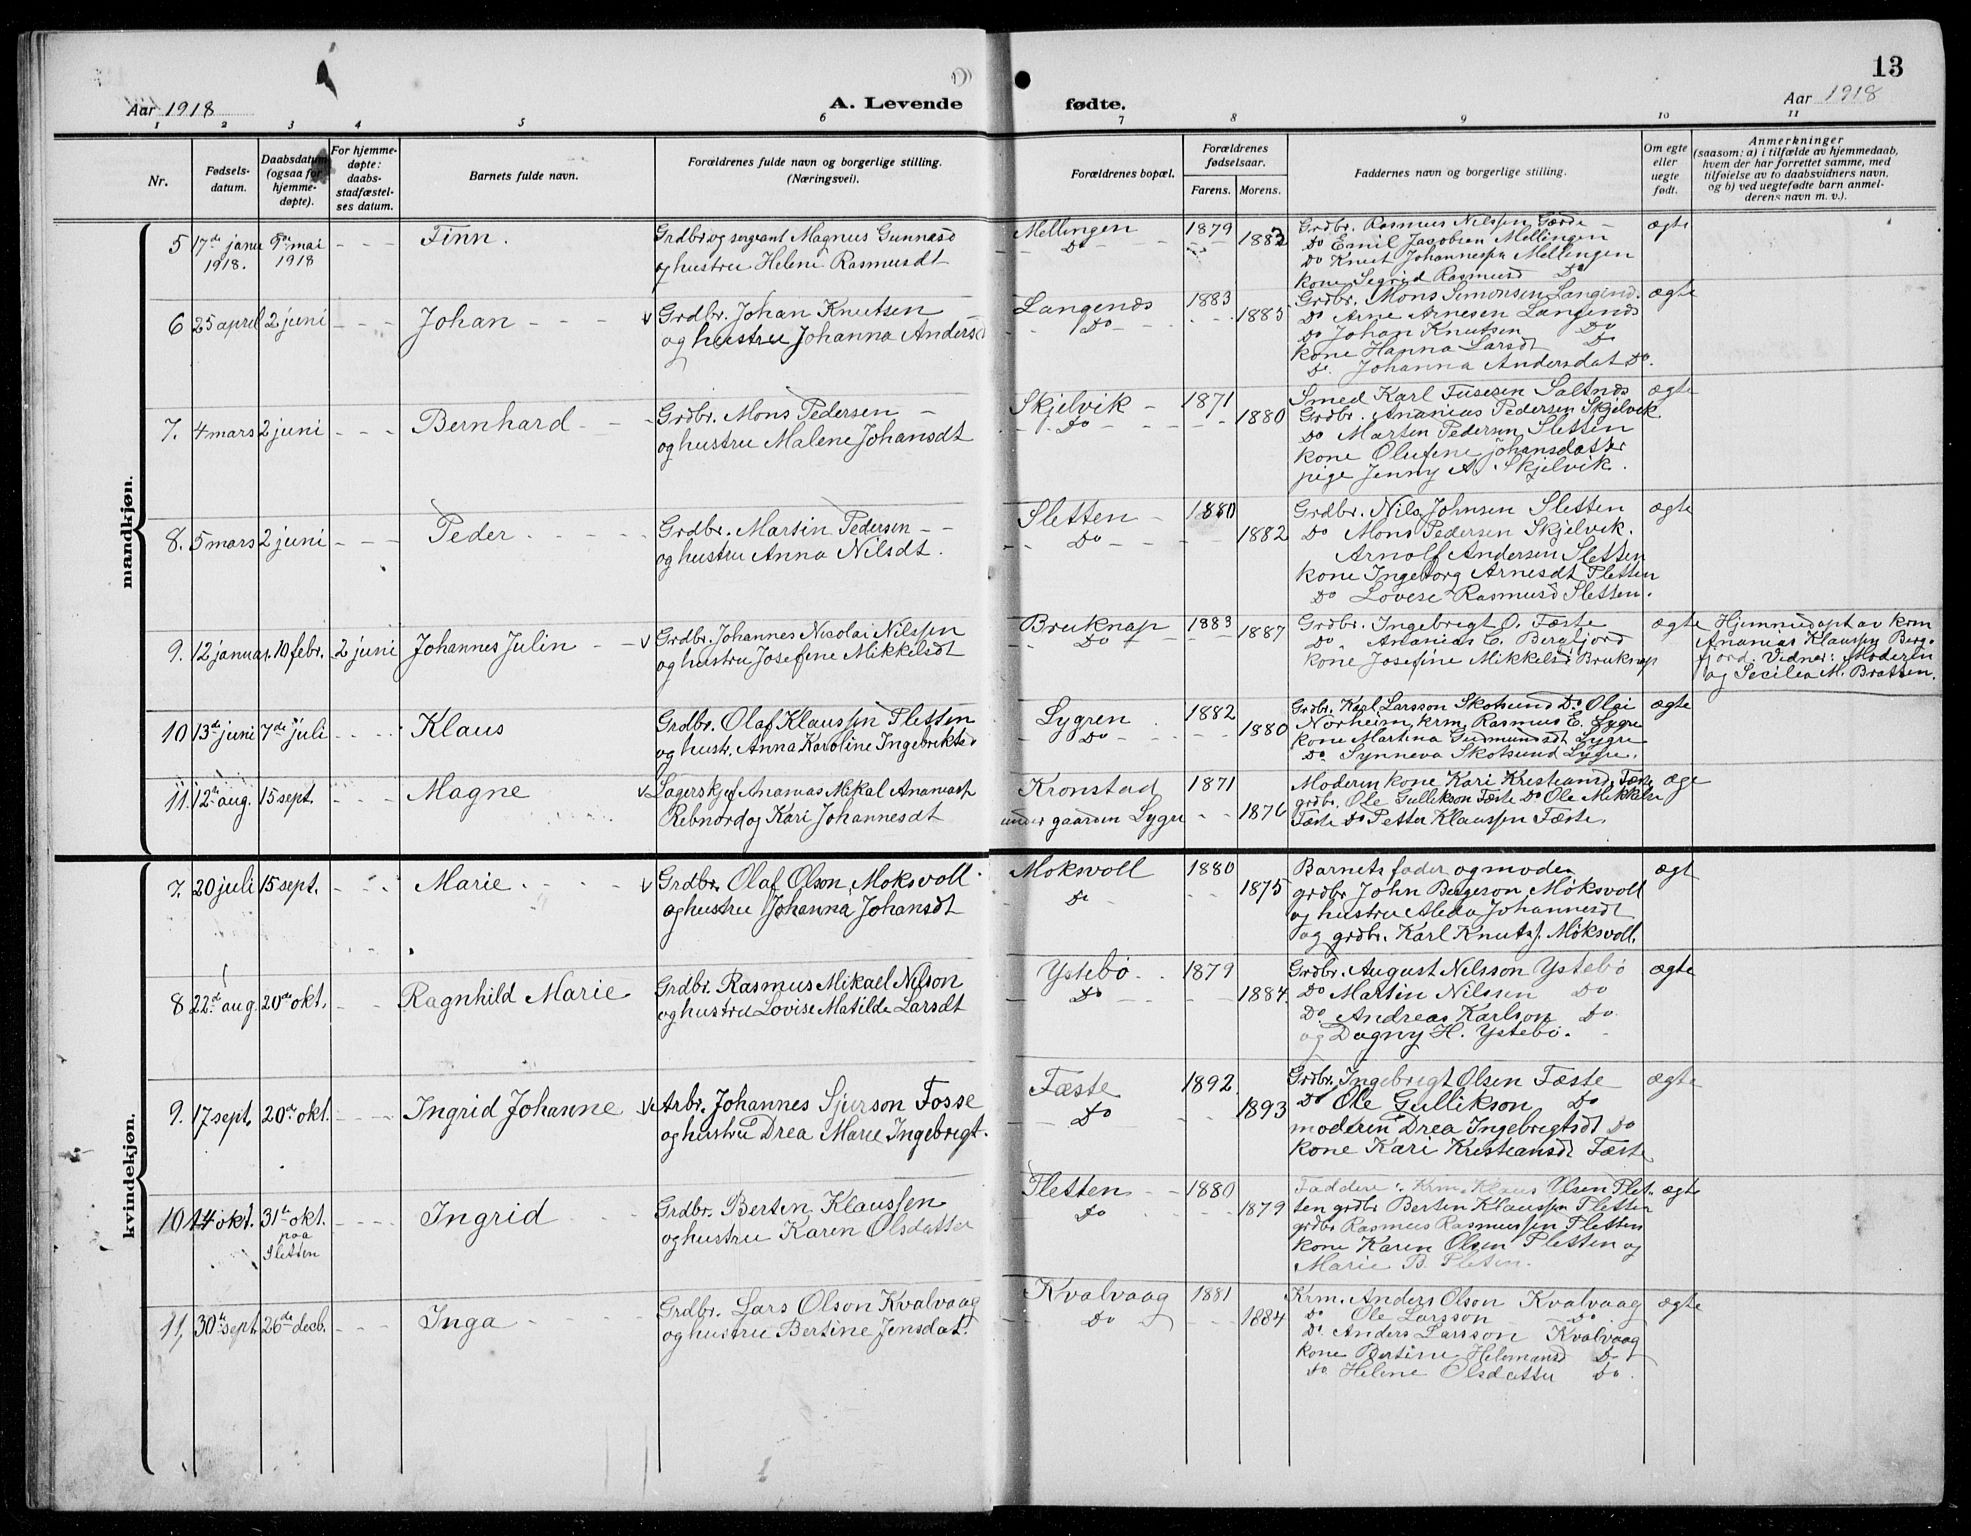 13
Aar 1918
A. Levende
fødte.
Aar 1918
1 2 3 4 5 6 7 8 9 10 11
Nr.
Fødsels-
datum.
Daabsdatum
(ogsaa for
hjemme-
døpte).
For hjemme-
døpte:
daabs-
stadfæstel-
ses datum.
Barnets fulde navn.
Forældrenes fulde navn og borgerlige stilling.
(Næringsvei).
Forældrenes bopæl.
Forældrenes
fødselsaar.
Farens. Morens.
Faddernes navn og borgerlige stilling.
Om egte
eller
uegte
født.
Anmerkninger
(saasom: a) i tilfælde av hjemmedaab,
hvem der har forrettet samme, med
tilføielse av to daabsvidners navn,
og b) ved uegtefødte barn anmel-
derens navn m. v.).
mandkjøn.
5 17de janu
1918.
9de mai
1918
Finn.
Grdbr og sergeant Magnus Gunnasd
og hustru Helene Rasmusdt
Mellingen
Do
1879
1883
Grdbr. Rasmus Nilssen Gærde
Do Emil Jacobsen Mellingen
Do Knut Johannessen Mellingen
kone Sigrid Rasmusd Do
ægte
6 25 april 2 juni
Johan
Grdbr. Johan Knutsen
og hustru Johanna Andersd
Langenæs
Do
1883
1883
Grdbr. Mons Simonsen Langend.
Do Arne Arnesen Langenæs
Do Johan Knutsen Do
kone Hanna Larsdt Do
Do. Johanna Andersdat Do.
ægte
7. 4 mars 2 juni
Bernhard
Grdbr. Mons Pedersen
og hustru Malene Johansdt
Skjelvik
Do
1871
1880
Smed Karl Fusesen Saltnæs
Grdbr. Ananias Pedersen Skjelvik
Do Marten Pedersen Sletten
kone Olufine Johansdatter
pige Jenny A. Skjelvik.
ægte
8. 5 mars 2 juni
Peder
Grdbr. Martin Pedersen
og hustru Anna Nilsdt.
Sletten
Do
1880
1882
Grdbr. Nils Johnsen Sletten
Do Mons Pedersen Skjelvik.
Arnolf Andersen Sletten
kone Ingeborg Arnesdt Sletten
Do Lovise Rasmusd Sletten.
ægte
9. 12 januar. 10 febr. 2 juni
Johannes Julin
Grdbr. Johannes Nicolai Nilssen
og hustru Josefine Mikkelsdt
Bruknap
Do
1883
1887
Grdbr. Ingebrigt O. Fæste
Do Ananias C. Bergfjord
kone Josefine Mikkelsd Bruknap
ægte
Hjemmedøpt av krm
Ananias Klaussen Berg-
fjord. Vidner: Moderen
og Secilia M. Bratsen.
10 13de juni 7de juli
Klaus
Grdbr. Olaf Klaussen Sletten
og hust. Anna Karoline Ingebriktsd
Lygren
Do
1882
1880
Grdbr. Karl Larsson Skotsund Do Olai
Norheim, krm. Rasmus E. Lygre
kone Martina Gudmundsdt Lygre
Do. Synneva Skotsund Lygre.
ægte
11. 12te aug. 15 sept.
Magne
Lagerskjef Ananias Mikal Ananiass
Rebnord og Kari Johannesdt
Kronstad
under gaarden Lygre
1871
1876
Moderen kone Kari Kristiansd Fæste
grdbr. Ole Gullikson Fæste Do Ole Mikkelse
Fæste Do Petter Klaussen Fæste.
æge
kvindekjøn.
7. 20 juli 15 sept.
Marie
Grdbr. Olaf Olson Moksvoll
og hustru Johanna Johansdt
Moksvoll
Do
1880
1875
Barnets fader og moder
grdbr John Bergeron Möksvoll
og hustru Aleda Johannesdt
og grdbr. Karl Knuts. Möksvoll.
ægt
8 22d aug. 20de okt.
Ragnhild Marie
Grdbr. Rasmus Mikael Nilson
og hustru Lovise Matilde Larsdt
Ystebö
Do
1879
1884
Grdbr. August Nilsson Ystebö
Do Martin Nilssen Do
Do Andreas Karlson Do
og Dagny H. Ystebö.
ægte
9. 17 sept. 20de okt.
Ingrid Johanne
Arbr. Johannes Sjurson Fosse
og hustru Drea Marie Ingebrigt.
Fæste
Do
1892
1893
Grdbr. Ingebrigt Olsen Fæste
Do Ole Gullikson Do
moderen Drea Ingebrigtsdt Do
kone Kari Kristiansdt Fæste
ægte
10 14 okt. 31te okt.
paa
Sletten
Ingrid
Grdbr. Berten Klaussen
og hustru Karen Olsdatter
Sletten
Do
1880
1879
Faddere: Krm. Klaus Olsen Slet-
ten grdbr Berten Klaussen Sletten
grdbr Rasmus Rasmussen Sletten
kone Karen Olsen Sletten og
Marie B. Sleten.
ægte
11, 30te sept. 26de decb.
Inga
Grdbr. Lars Olson Kvalvaag
og hustru Bertine Jensdat.
Kvalvaag
Do
1881
1884
Krm. Anders Olson Kvalvaag
Do Ole Larsson Do
Do. Anders Larsson Kvalvaag
kone Bertine Helemansd Do
Do Helene Olsdatter Do
ægte